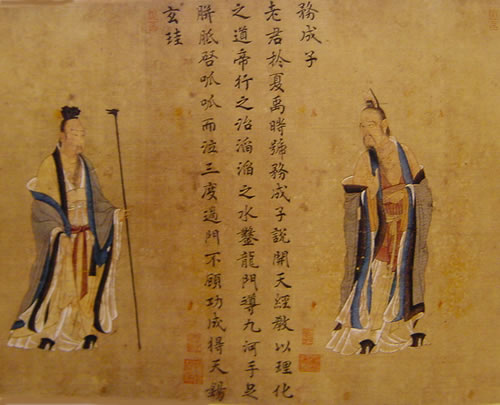 務成子
老君於夏禹時號務成子說開天經教以理化
之道帝行之治滔滔之水鑿龍門導九河手足
胼胝啓呱呱而泣三度過門不顧功成得天錫
玄珪